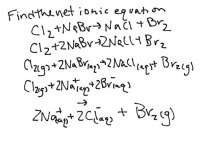 Find the net ionic equation
Cl2+NaBr→NaCl+Br2
Cl2+2NaBr→2NaCl+Br2
Cl2(g)+2NaBr(aq)→2NaCl(aq)+Br2(g)
Cl2(g)+2Na+(aq)+2Br-(aq)
→
2Na+(aq)+2Cl-(aq)+Br2(g)